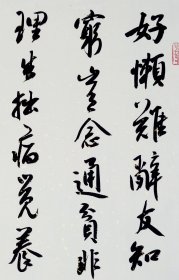 好懶難辭友知
窮豈念通貧非
理生拙病覺養